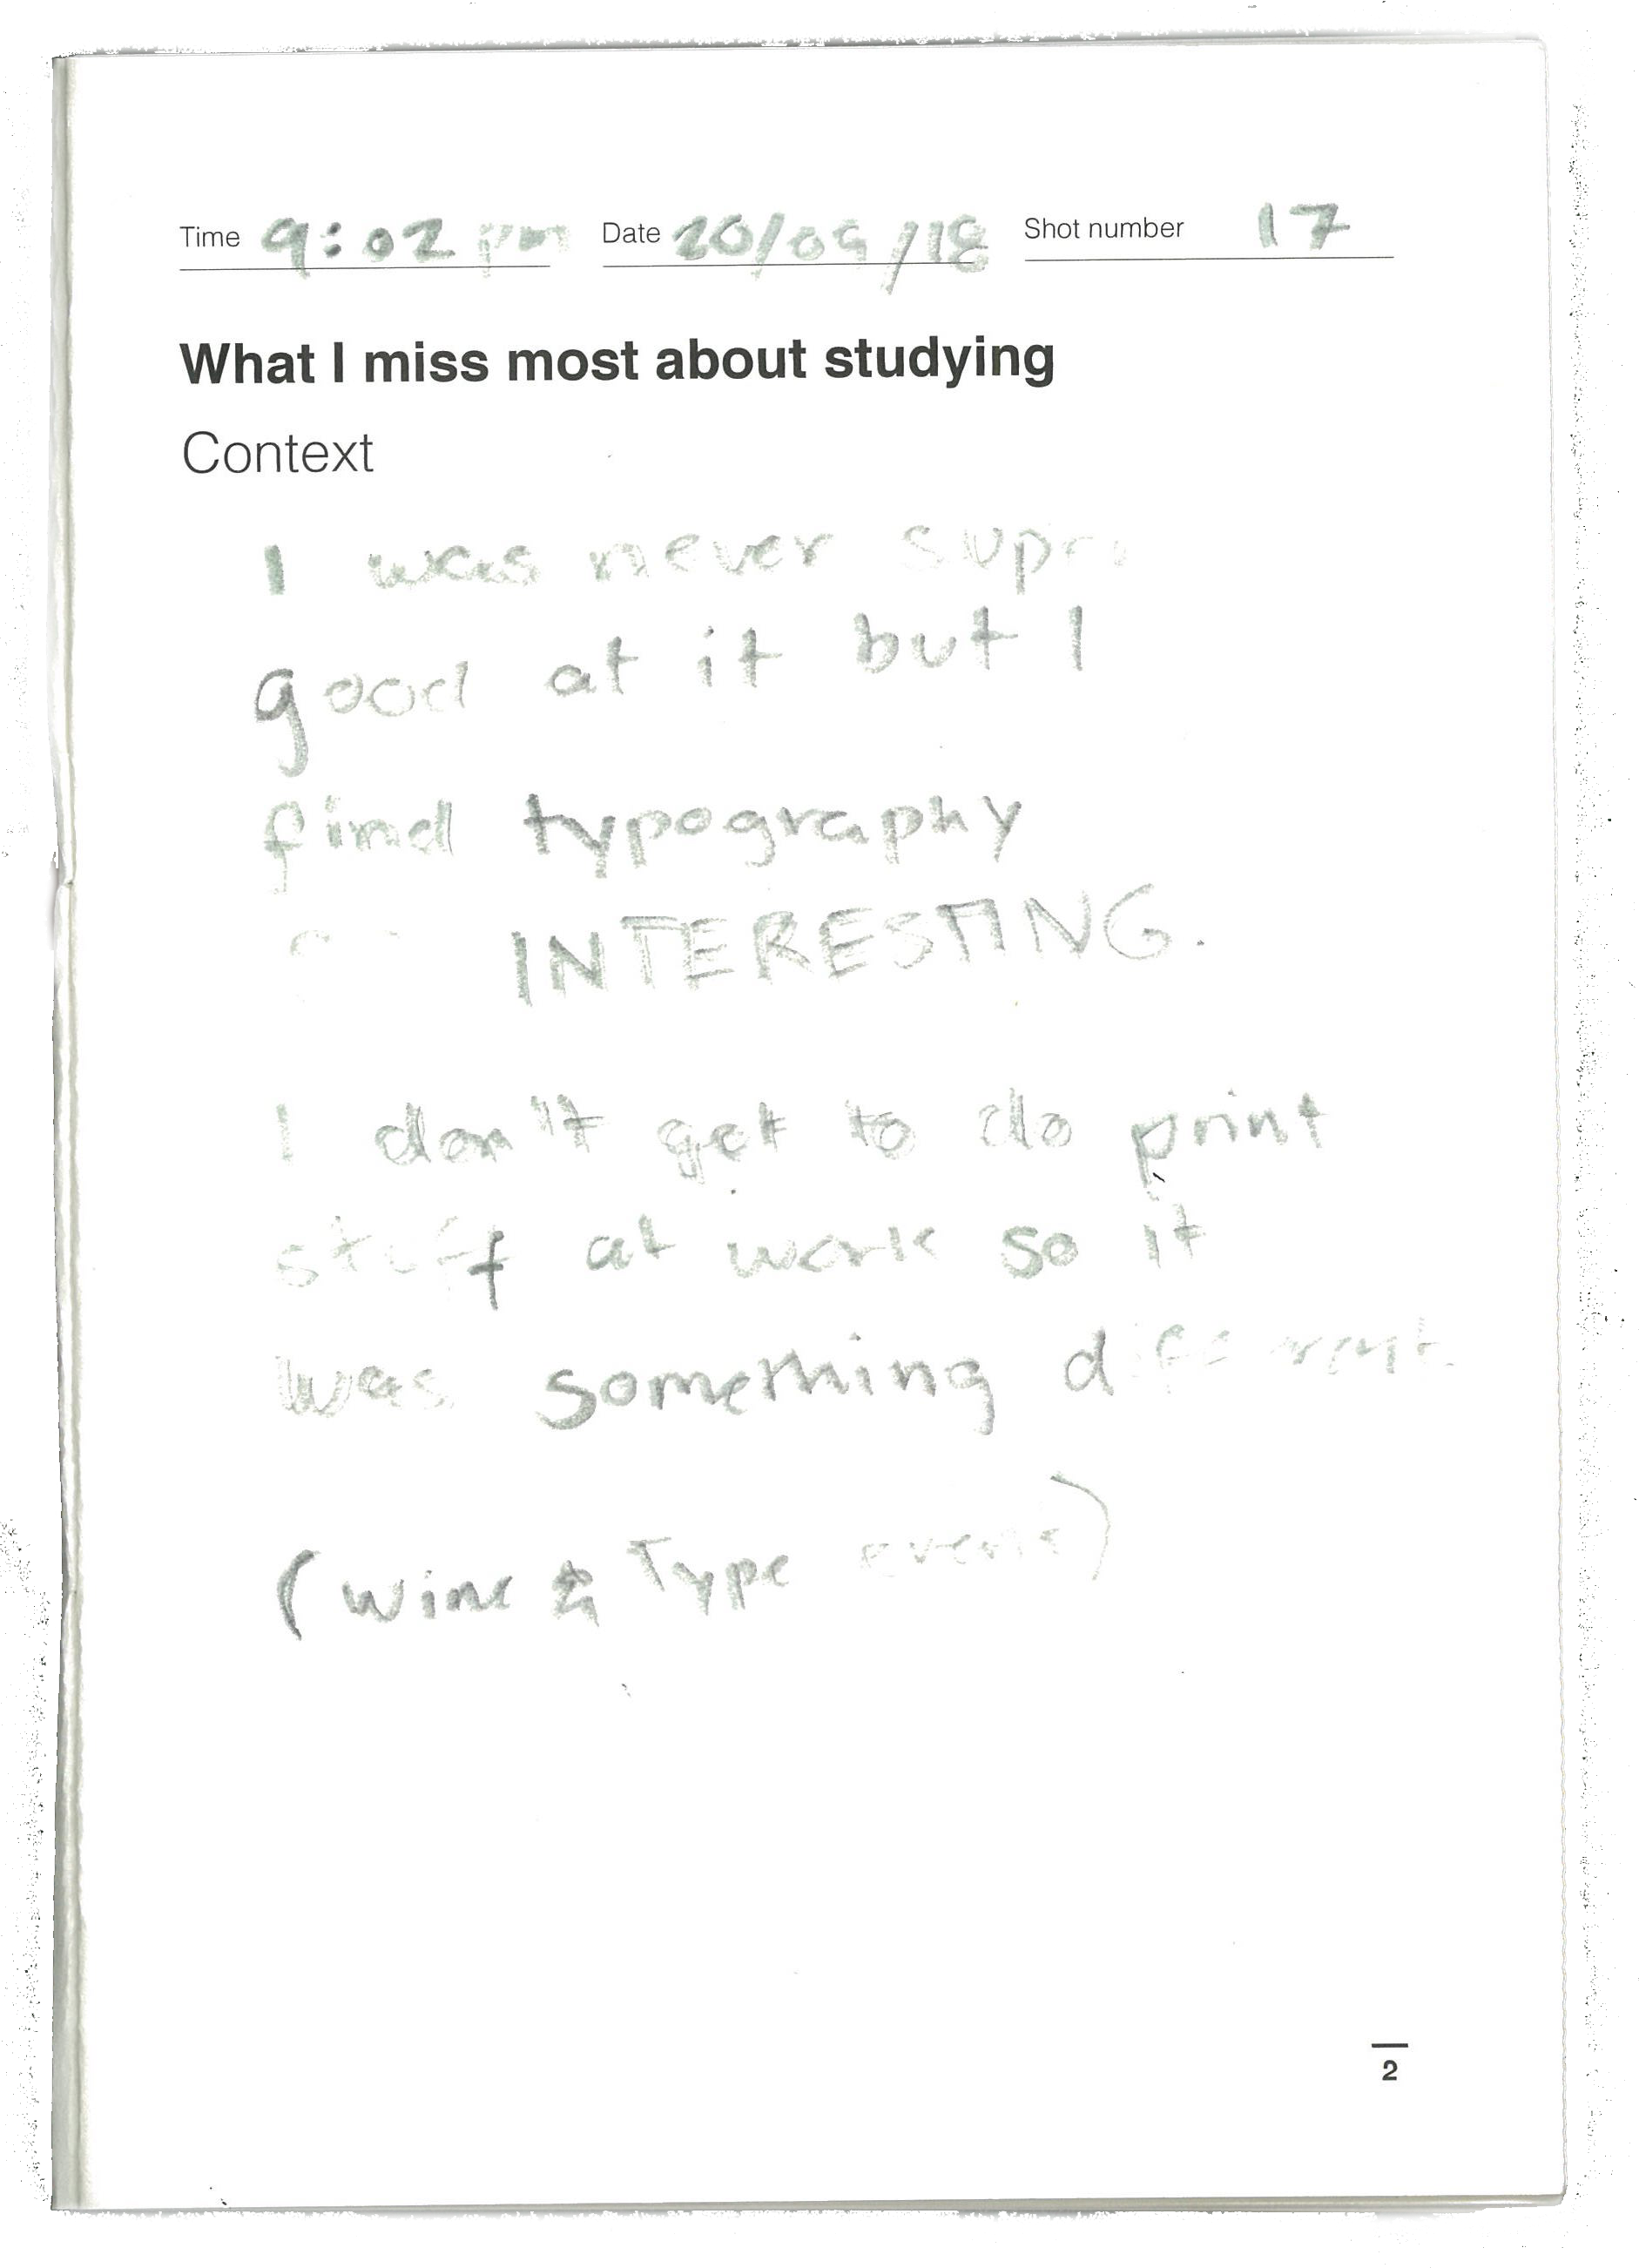 Time 9:02 pm Date 20/09/18 Shot number 17
What I miss most about studying
Context
I was never
good at it but I
find typography
INTERESTING.
I don't get to do print
stuff at work so it
was something different
(Wine & Type event)
2